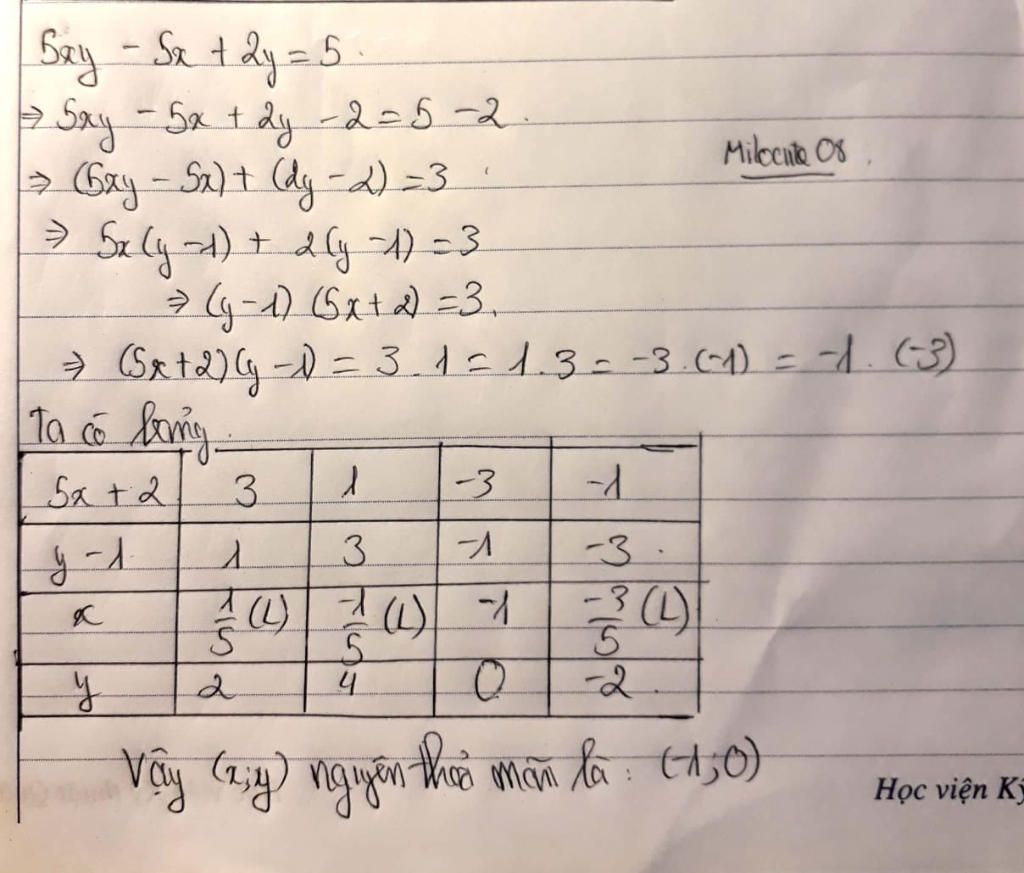 5xy - 5x + 2y = 5.
⇒ 5xy - 5x + 2y - 2 = 5 - 2.
Milocute 08.
⇒ (5xy - 5x) + (2y - 2) = 3
⇒ 5x(y - 1) + 2(y - 1) = 3
⇒ (y - 1) (5x + 2) = 3.
⇒ (5x + 2)(y - 1) = 3 . 1 = 1 . 3 = -3 . (-1) = -1 . (-3)
Ta có bảng.
5x + 2 3 1 -3 -1
y - 1 1 3 -1 -3.
x 1/5 (L) -1/5 (L) -1 -3/5 (L)
y 2 4 0 -2.
Vậy (x;y) nguyên thoả mãn là: (-1; 0)
Học viện Kỹ